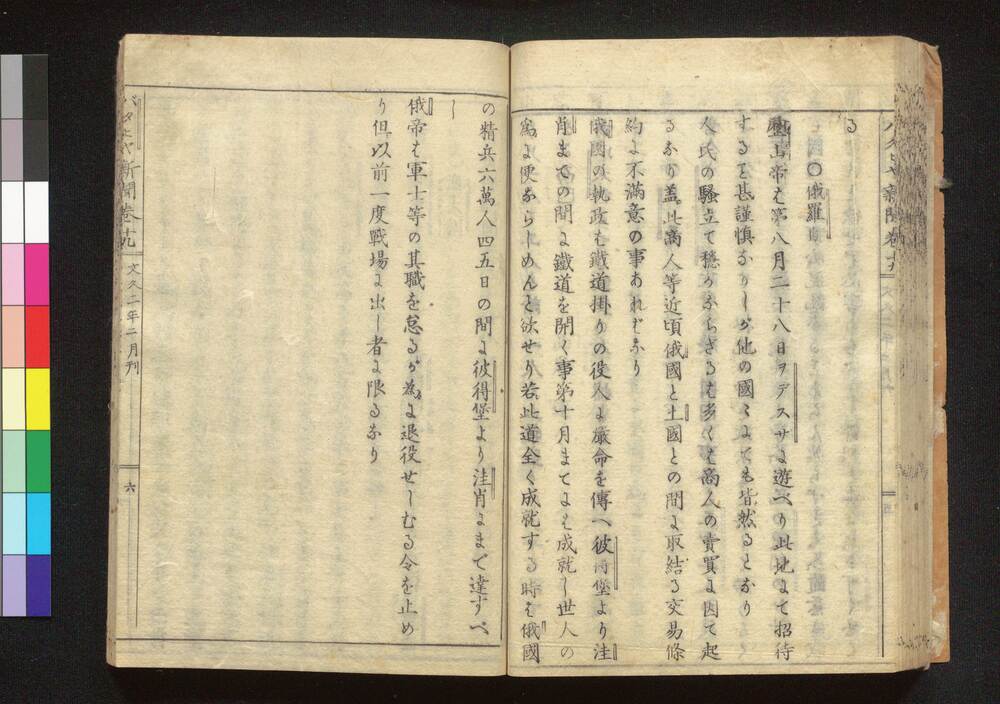 る
〇俄羅
歴山帝ハ第八月二十八日ヲデスサニ遊べり此地にて招待
するを甚謹慎なりしが他の國々にても皆然るとなり
人氏の騒立て穏かならざるハ多くハ商人の賣買に因て起
るなり蓋此商人等近頃俄國と土國との間に取結る交易條
約に不滿意の事あれバなり
俄國の執政ハ鐵道掛りの役人に嚴命を傳へ彼得堡より洼
肖までの間に鐵道を開く事第十月まてにハ成就し世人の
爲に便ならしめんと欲せり若此道全く成就する時ハ俄國
の精兵六萬人四五日の間に彼得堡より洼肖にまで達すべ
し
俄帝ハ軍士等の其職を怠るが為に退役せしむる令を止め
り但以前一度戰場に出し者に限るなり
バタヒヤ新聞卷十九
文久二年二月刊
六